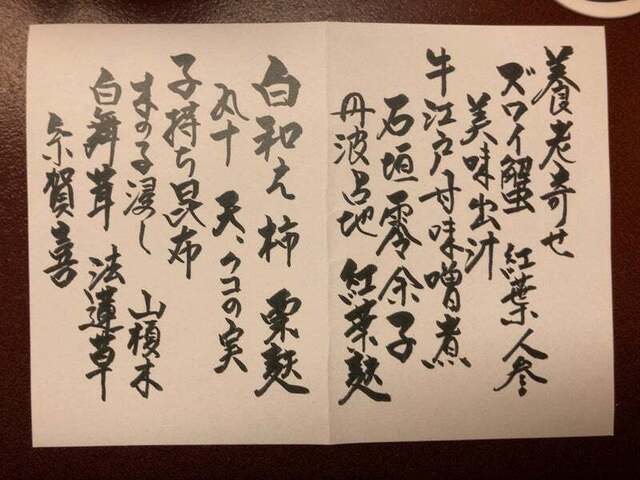 養老寄せ
ズワイ蟹 紅葉人参
美味出汁
牛江戸甘味噌煮
石垣零余子
丹波占地 紅葉麩
白和え 柿 栗麩
丸十 天、クコの実
子持ち昆布
木の子浸し 山椒木
白舞茸 法蓮草
糸賀喜